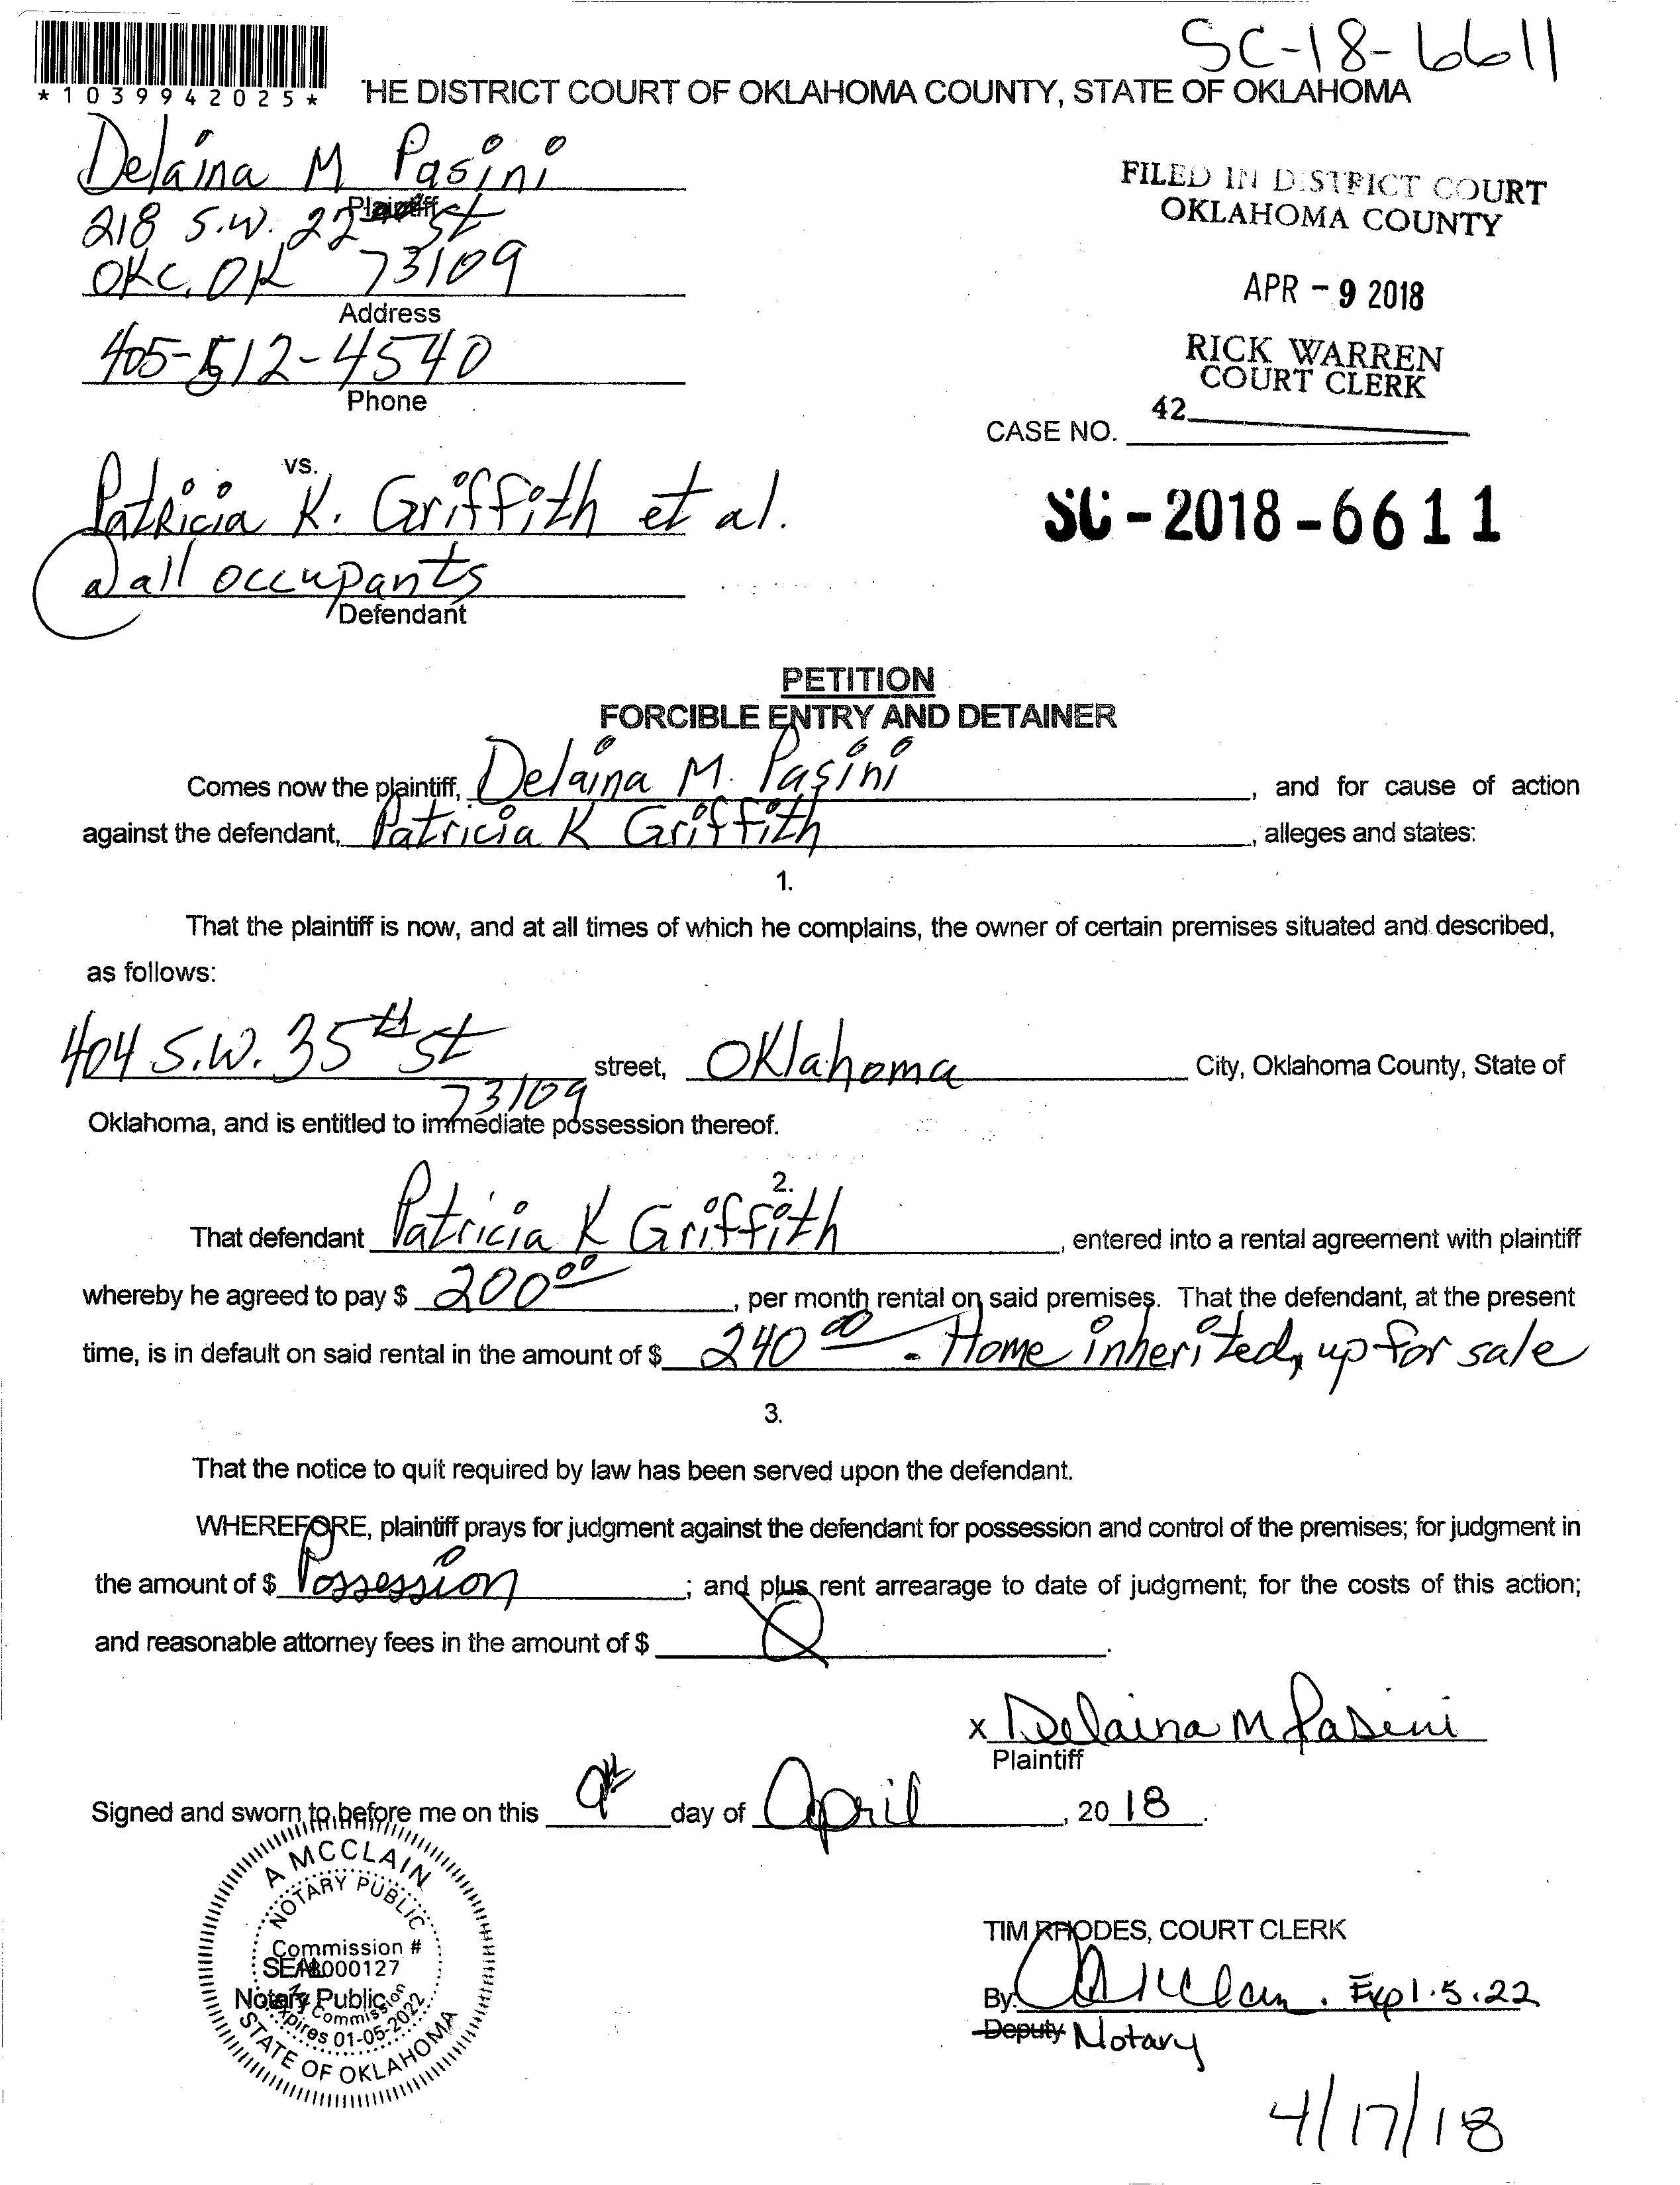 SC-18-6611
*1039942025*
HE DISTRICT COURT OF OKLAHOMA COUNTY, STATE OF OKLAHOMA
Delaina M Pasini
Plaintiff
218 S.W. 22 st
OKC, OK 73109
Address
405-512-4540
Phone
FILED IN DISTRICT COURT
OKLAHOMA COUNTY
APR - 9 2018
RICK WARREN
COURT CLERK
42
CASE NO.
SC - 2018 - 6611
vs.
Patricia K. Griffith et al.
a all occupants
Defendant
PETITION
FORCIBLE ENTRY AND DETAINER
Comes now the plaintiff, Delaina M. Pasini, and for cause of action
against the defendant, Patricia K Griffith, alleges and states:
1.
That the plaintiff is now, and at all times of which he complains, the owner of certain premises situated and described,
as follows:
404 S.W. 35th st street, Oklahoma City, Oklahoma County, State of
73109
Oklahoma, and is entitled to immediate possession thereof.
2.
That defendant Patricia K Griffith, entered into a rental agreement with plaintiff
whereby he agreed to pay $ 200 00, per month rental on said premises. That the defendant, at the present
time, is in default on said rental in the amount of $ 240 00 - Home inherited, up for sale
3.
That the notice to quit required by law has been served upon the defendant.
WHEREFORE, plaintiff prays for judgment against the defendant for possession and control of the premises; for judgment in
the amount of $ Possession; and plus rent arrearage to date of judgment; for the costs of this action;
and reasonable attorney fees in the amount of $ .
x Delaina M Pasini
Plaintiff
Signed and sworn to before me on this 9th day of April, 20 18.
A MCCLAIN
NOTARY PUBLIC
Commission #
SEAL 000127
Notary Public
My Commission
Expires 01-05-2022
STATE OF OKLAHOMA
TIM RHODES, COURT CLERK
By: . Exp 1.5.22
Deputy Notary
4/17/18